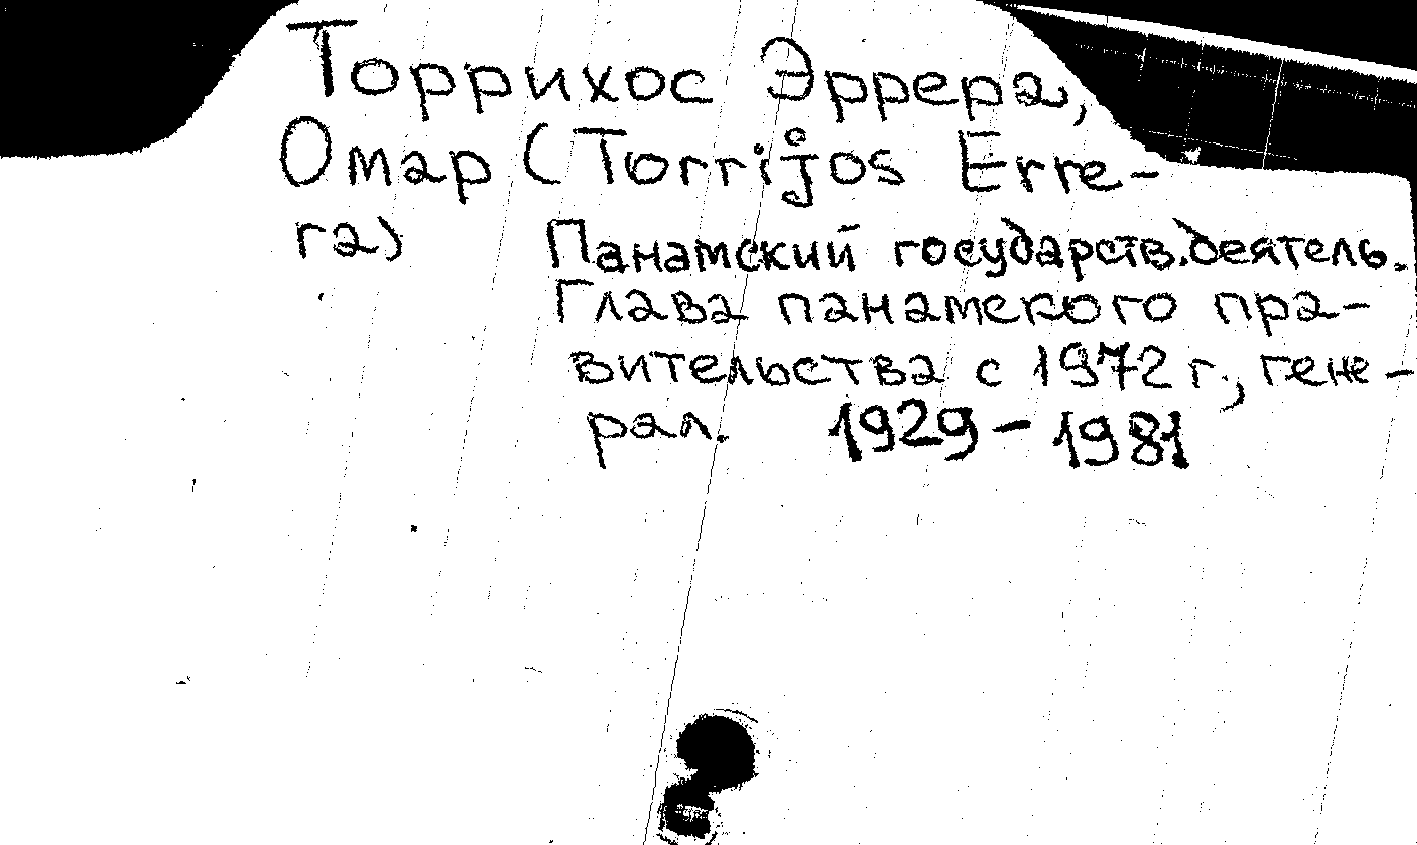 Торрихос Эррера,
Омар (Torrijos Erre-
ra)
Панамский государств.деятель.
Глава панамского пра-
вительства с 1972 г., гене-
рал. 1929 - 1981